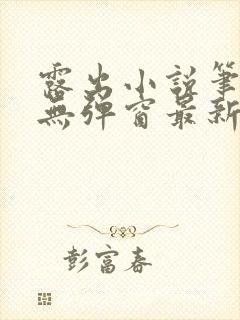 露出小說筆
無彈窗最新
彭富春